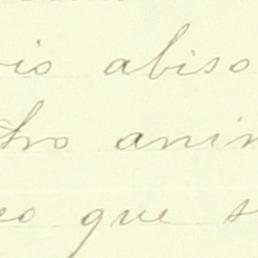 io abiso
tro anim
eo que s